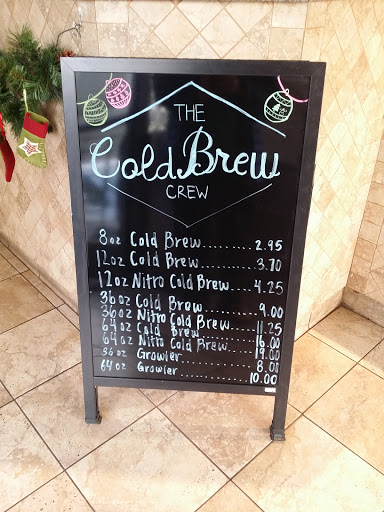 THE
Cold Brew
CREW
8oz Cold Brew..........2.95
12oz Cold Brew..........3.70
12oz Nitro Cold Brew.....4.25
36oz Cold Brew..........9.00
36oz Nitro Cold Brew......11.25
64oz Cold Brew..........16.00
64oz Nitro Cold Brew.....19.00
36oz Growler............8.00
64oz Growler............10.00